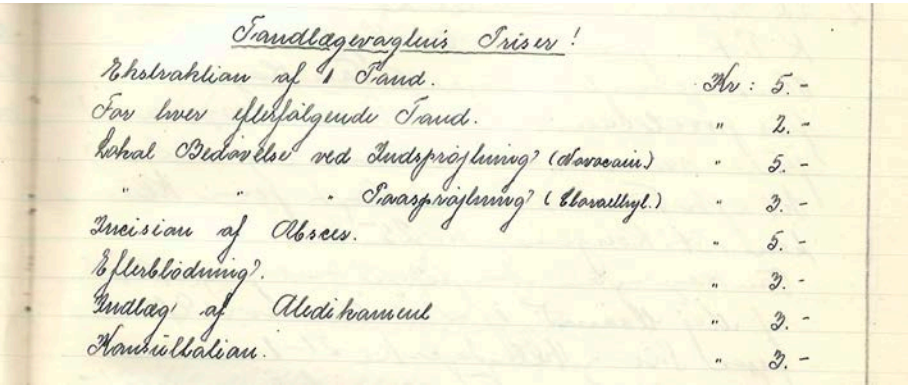 Tandlægevagtens Priser!
Ekstraktion af 1 Tand. Kr: 5.-
For hver efterfølgende Tand. " 2.-
Lokal Bedøvelse ved Indsprøjtning (Novocain) " 5.-
" " " Paasprøjtning (Chloraethyl.) " 3.-
Incision af Absces. " 5.-
Efterblødning. " 3.-
Indlæg af Medikament " 3.-
Konsultation. " 3.-